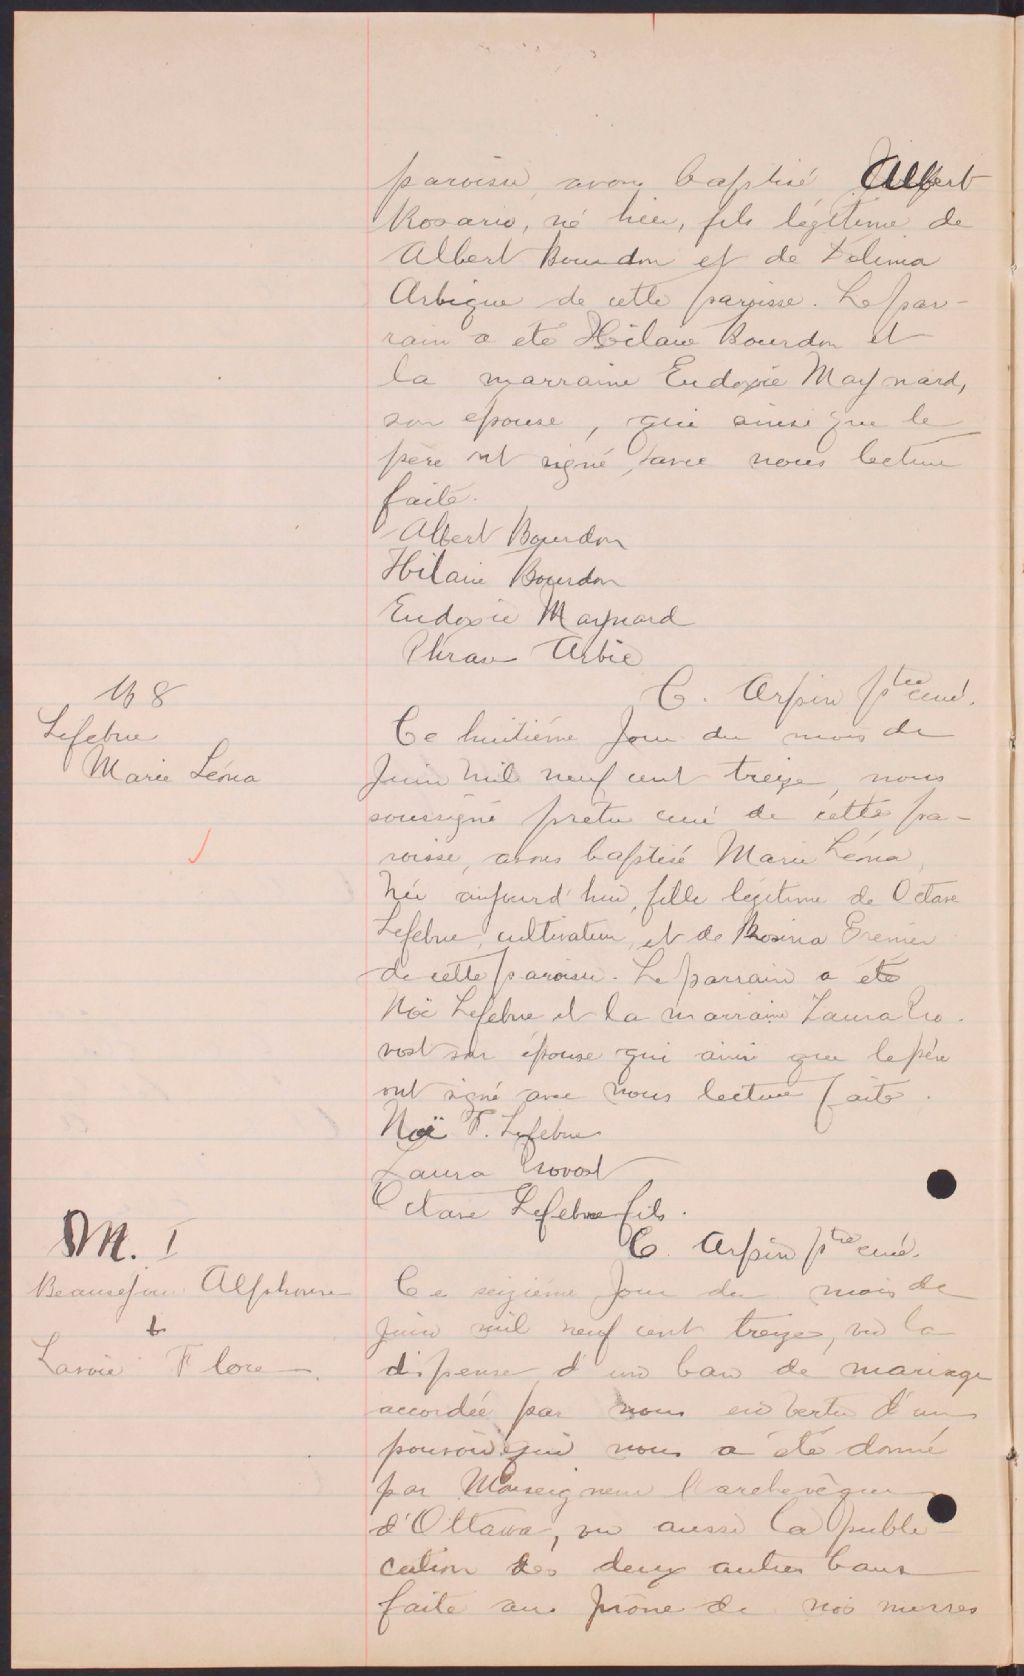 paroisse, avons baptisé Albert
Rosario, né hier, fils légitime de
Albert Bourdon et de Délima
Arbique de cette paroisse. Le par-
rain a été Hilaire Bourdon et
la marraine Eudoxie Maynard,
son épouse, qui ainsi que le
père ont signé avec nous lecture
faite.
Albert Bourdon
Hilaire Bourdon
Eudoxie Maynard
Arbic
C. Arpin ptre curé.
B 8
Lefebvre
Marie Léona
Ce huitième jour du mois de
Juin mil neuf cent treize, nous
soussigné prêtre curé de cette pa-
roisse, avons baptisé Marie Léona,
née aujourd'hui, fille légitime de Octave
Lefebvre, cultivateur, et de Rosina Grenier
de cette paroisse. Le parrain a été
Noë Lefebvre et la marraine Laura Pro-
vost son épouse qui ainsi que le père
ont signé avec nous lecture faite.
Noë F. Lefebvre
Laura Provost
Octave Lefebvre fils.
C. Arpin ptre curé.
M. I
Beausejour Alphonse
&
Lavoie Flore
Ce seizième jour du mois de
juin mil neuf cent treize, vu la
dispense d'un ban de mariage
accordée par nous en vertu d'un
pouvoir qui nous a été donné
par Monseigneur l'archevêque
d'Ottawa, vu aussi la publi
cation des deux autres bans
faite au prône de nos messes